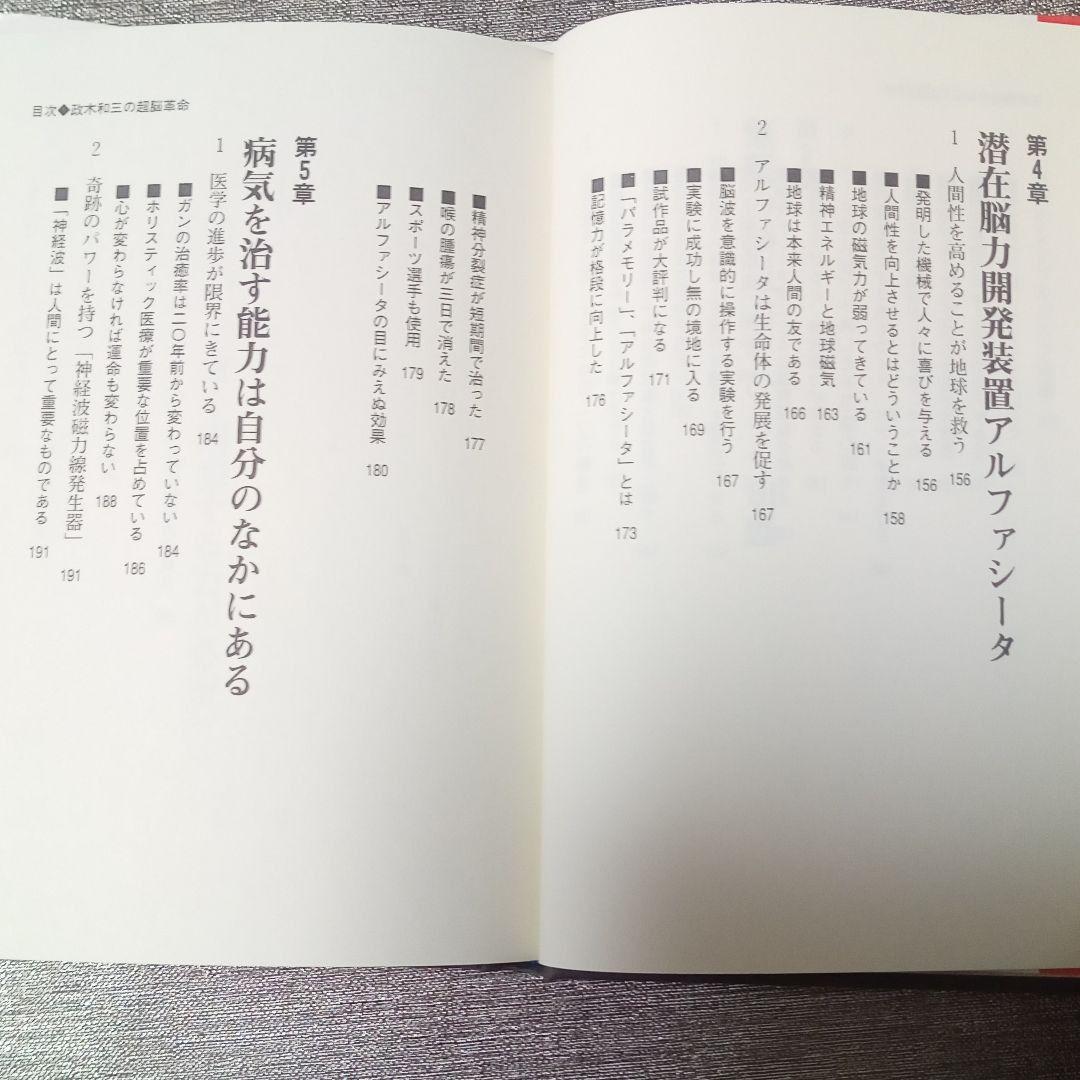 第4章
潜在脳力開発装置アルファシータ
1 人間性を高めることが地球を救う 156
■発明した機械で人々に喜びを与える 156
■人間性を向上させるとはどういうことか 158
■地球の磁気力が弱ってきている 161
■精神エネルギーと地球磁気 163
■地球は本来人間の友である 166
2 アルファシータは生命体の発展を促す 167
■脳波を意識的に操作する実験を行う 167
■実験に成功し無の境地に入る 169
■試作品が大評判になる 171
■「パラメモリー」、「アルファシータ」とは 173
■記憶力が格段に向上した 176
■精神分裂症が短期間で治った 177
■喉の腫瘍が三日で消えた 178
■スポーツ選手も使用 179
■アルファシータの目にみえぬ効果 180
第5章
病気を治す能力は自分のなかにある
1 医学の進歩が限界にきている 184
■ガンの治癒率は二〇年前から変わっていない 184
■ホリスティック医療が重要な位置を占めている 186
■心が変わらなければ運命も変わらない 188
2 奇跡のパワーを持つ「神経波磁力線発生器」 191
■「神経波」は人間にとって重要なものである 191
目次◆政木和三の超脳革命